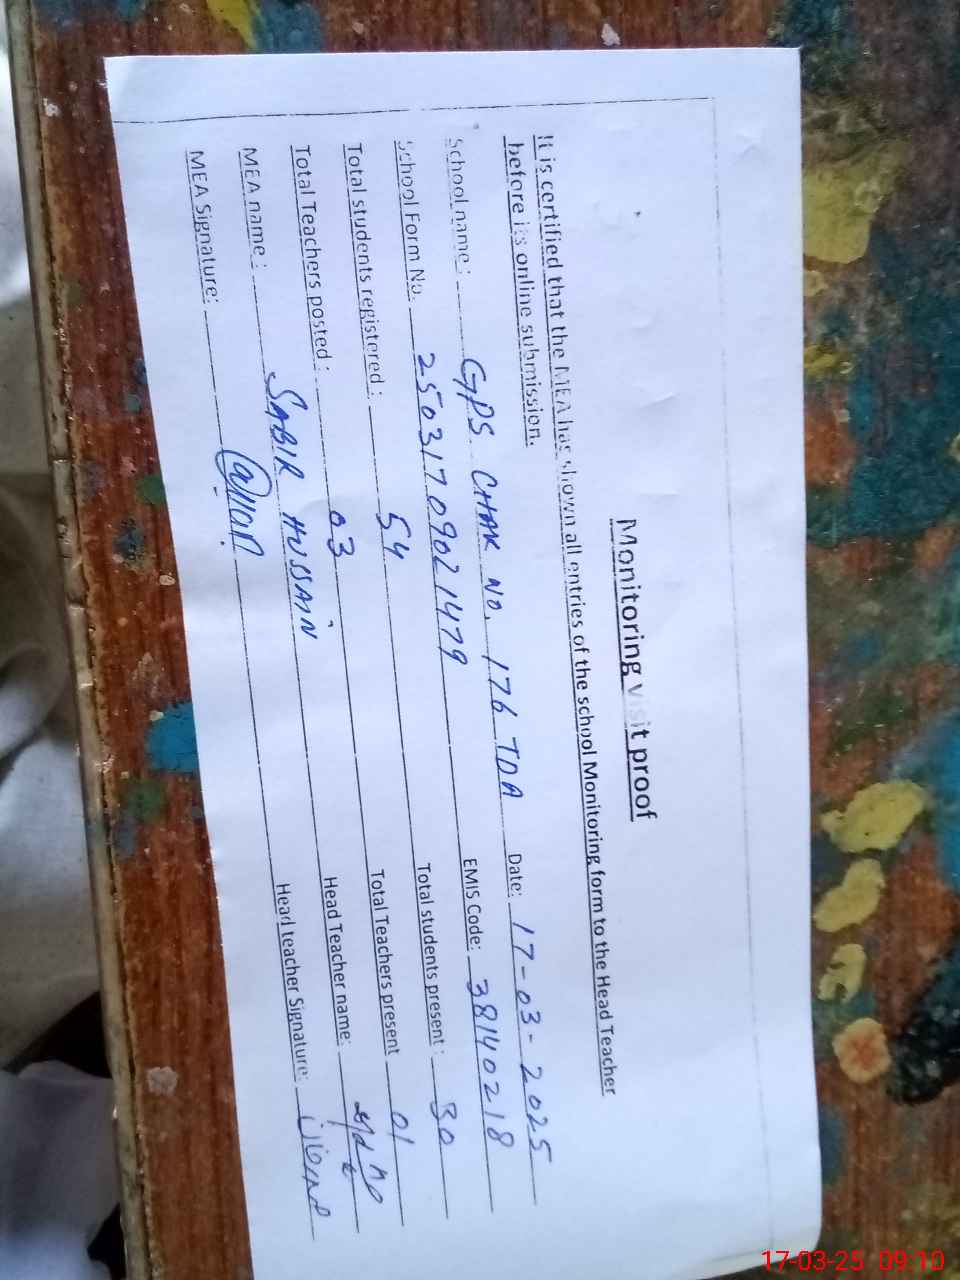 Monitoring visit proof
It is certified that the MEA has shown all entries of the school Monitoring form to the Head Teacher
before its online submission.
School name: GPS CHAK NO. 176 TDA Date: 17-03-2025
School Form No. 25031709021479 EMIS Code: 38140218
Total students registered: 54 Total students present: 30
Total Teachers posted: 03 Total Teachers present 01
MEA name: SABIR HUSSAIN Head Teacher name:
MEA Signature: Head teacher Signature:
17-03-25 09:10